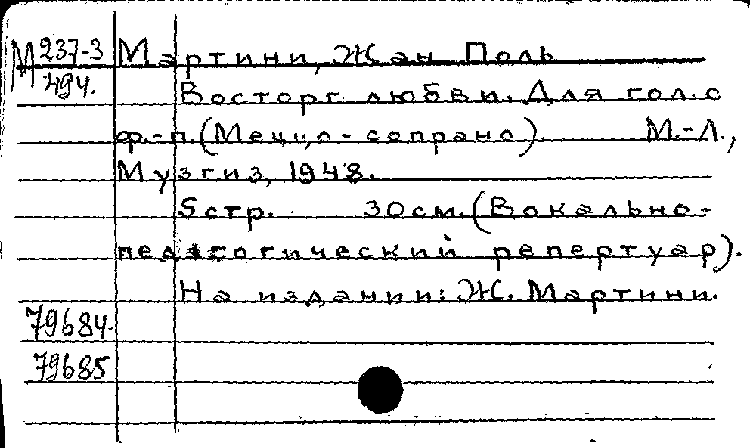 М 237-3 Мартини, Жан Поль
494.
Восторг любви. Для гол. с
ф.-п. (Меццо-сопрано). М.-Л.,
Музгиз, 1948.
5 стр. 30 см. (Вокально-
педагогический репертуар).
На издании: Ж. Мартини.
79684.
79685